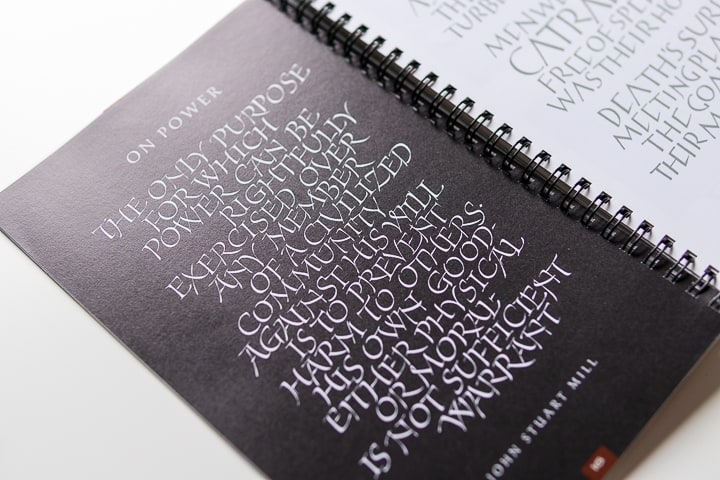 ON POWER
THE ONLY PURPOSE
FOR WHICH
POWER CAN BE
RIGHTFULLY
EXERCISED OVER
ANY MEMBER
OF A CIVILIZED
COMMUNITY
AGAINST HIS WILL
IS TO PREVENT
HARM TO OTHERS.
HIS OWN GOOD
EITHER PHYSICAL
OR MORAL
IS NOT SUFFICIENT
WARRANT
JOHN STUART MILL
TURBI
MENWE
CATRA
FREE OF SPE
WAS THEIR HO
DEATH'S SUR
MEETING PLA
THE GOA
THEIR M